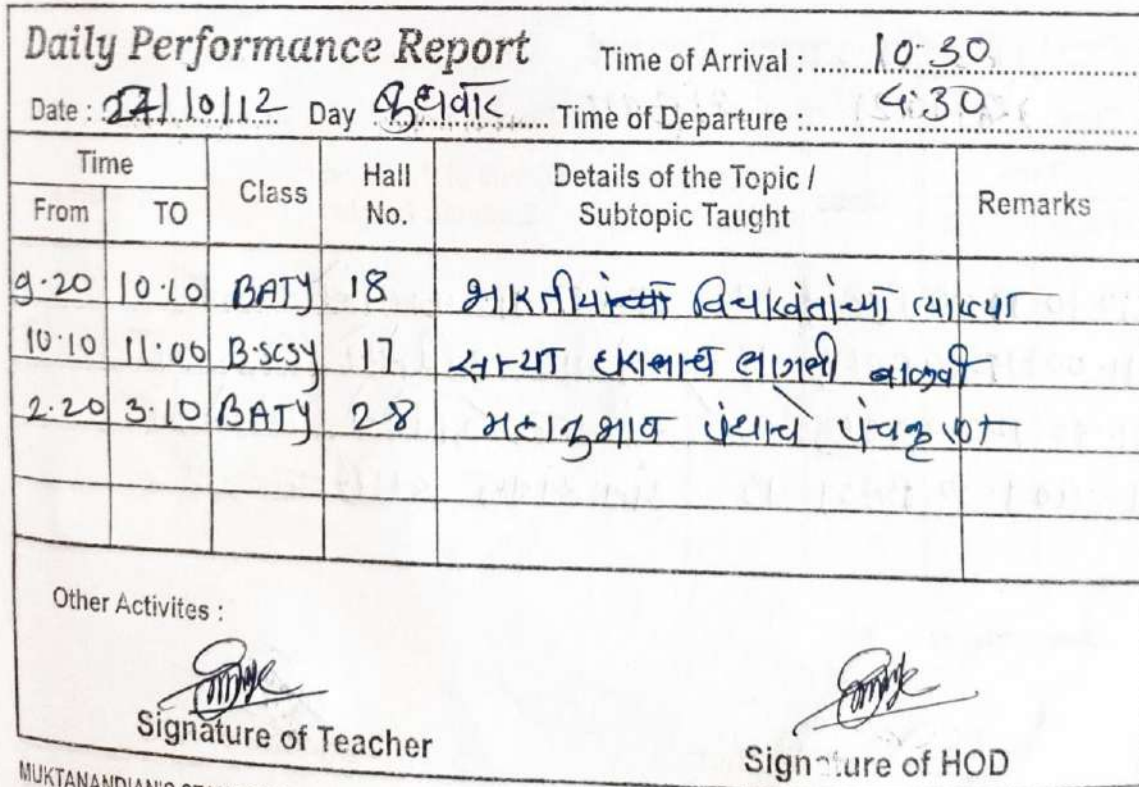 Daily Performance Report Time of Arrival : 10.30
Date : 24/10/12 Day बुधवार Time of Departure : 4:30
Time Class Hall No. Details of the Topic / Subtopic Taught Remarks
From TO
9.20 10.10 BATY 18 भारतीयांच्या विचारवंतांच्या व्याख्या
10.10 11.00 B.SCSY 17 लागली
2.20 3.10 BATY 28 महानुभाव पंथाचे पंचकृष्ण
Other Activites :
Signature of Teacher Signature of HOD